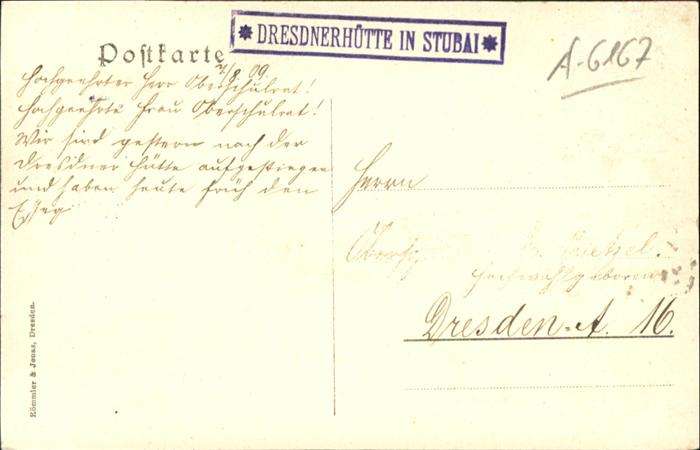 Postkarte
DRESDNERHÜTTE IN STUBAI
A-6167
7/8 09
Hochgeehrter Herr Oberschulrat!
Hochgeehrte Frau Oberschulrat!
Wir sind gestern nach der
Dresdner Hütte aufgestiegen
und haben heute früh den
Herrn
Hochwohlgeboren
Dresden-A. 16.
Römmler & Jonas, Dresden.